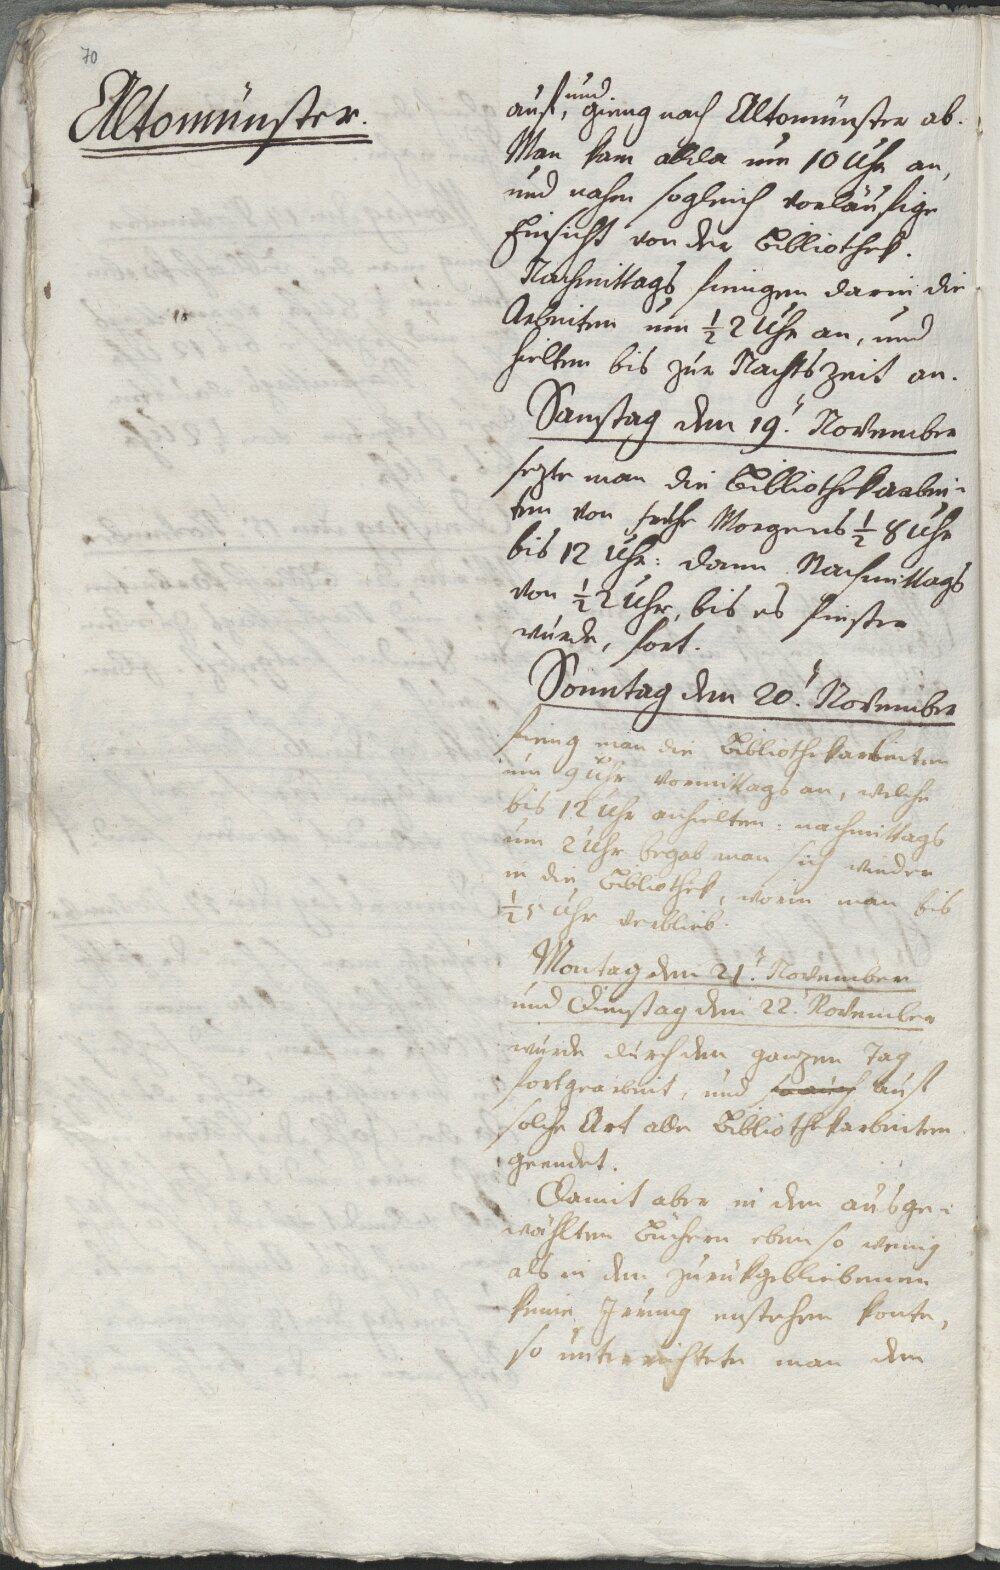 70
Altomünster.
auf, und gieng nach Altomünster ab.
Man kam allda um 10 Uhr an,
und nahm sogleich vorläufige
Einsicht von der Bibliothek.
Nachmittags fiengen darin die
Arbeiten um ½ 2 Uhr an, und
hielten bis zur Nachtszeit an.
Samstag den 19. November
sezte man die Bibliothekarbei-
ten von frühe Morgens ½ 8 Uhr
bis 12 Uhr: dann Nachmittags
von ½ 2 Uhr, bis es finster
wurde, fort.
Sonntag den 20. November
fieng man die Bibliothekarbeiten
um 9 Uhr vormittags an, welche
bis 12 Uhr anhielten: nachmittags
um 2 Uhr begab man sich wieder
in die Bibliothek, worin man bis
½ 5 Uhr verblieb.
Montag den 21. November
und Dienstag den 22. November
wurde durch den ganzen Tag
fortgearbeit, und auf
solche Art alle Bibliothekarbeiten
geendet.
Damit aber in den ausge-
wählten Büchern eben so wenig
als in den zurükgebliebenen
keine Irrung enstehen konte,
so unterrichtete man den